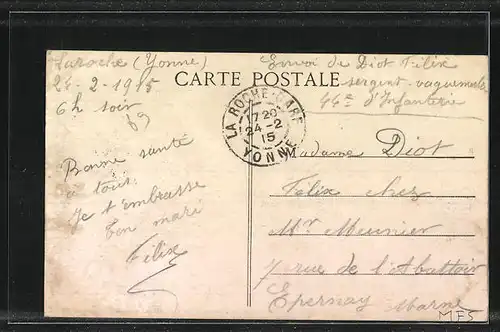 Laroche (Yonne)
24-2-1915
6h soir
Bonne santé
à tous.
Je t'embrasse
Ton mari
Félix
Envoi de Diot Félix
sergent-vaguemestre
46e d'Infanterie
CARTE POSTALE
LA ROCHE-GARE
7 20
24-2
15
YONNE
Madame Diot
Félix chez
Mr Meunier
7 rue de l'Abattoir
Epernay Marne
MFS